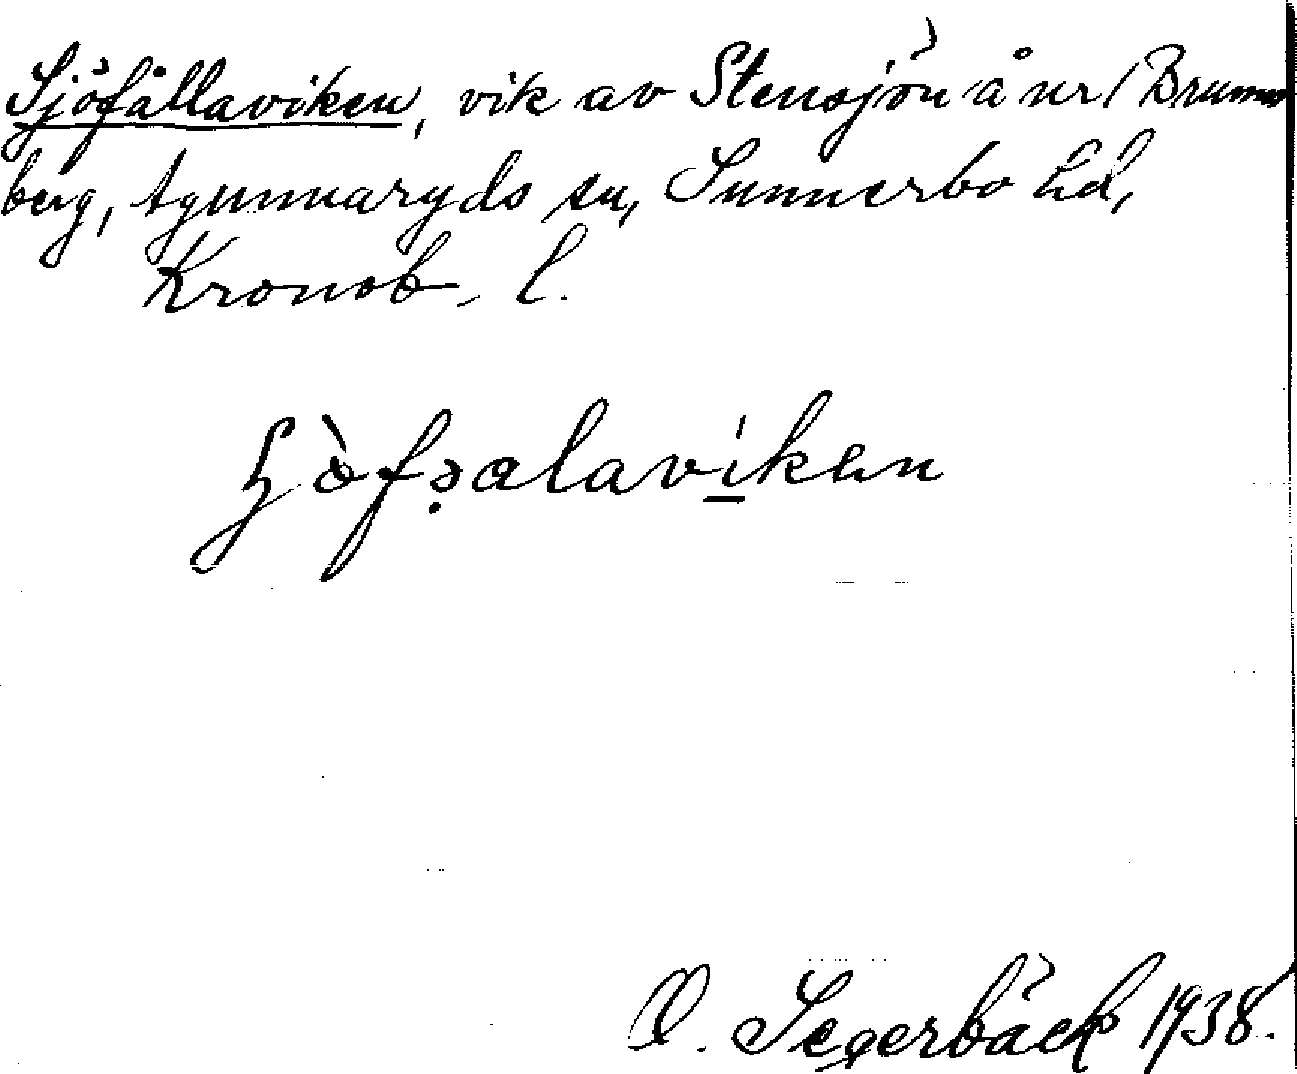 Sjöfållaviken, vik av Stensjön å nr 1 Brunns
berg, Agunnaryds sn, Sunnerbo hd,
Kronob. l.
O. Segerbäck 1938.